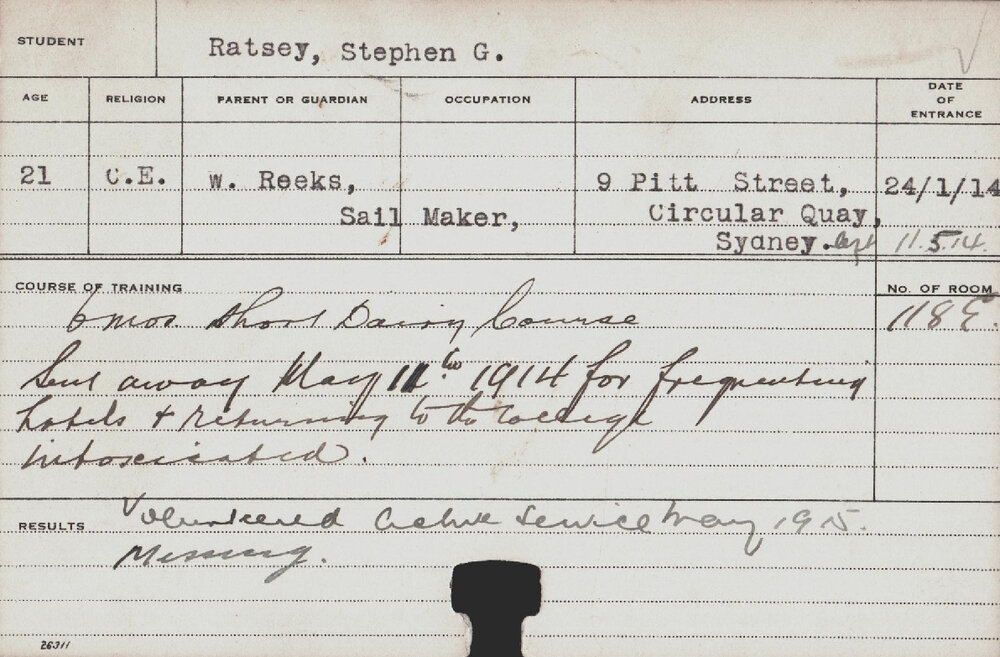 STUDENT Ratsey, Stephen G.
AGE RELIGION PARENT OR GUARDIAN OCCUPATION ADDRESS DATE OF ENTRANCE
21 C.E. W. Reeks, 9 Pitt Street, 24/1/14
Sail Maker, Circular Quay,
Sydney. Left 11.5.14.
COURSE OF TRAINING No. OF ROOM
6 mos Short Dairy Course 118 E.
Sent away May 11th 1914 for frequenting
hotels & returning to the College
intoxicated.
RESULTS Volunteered Active Service May 1915.
Missing.
26311